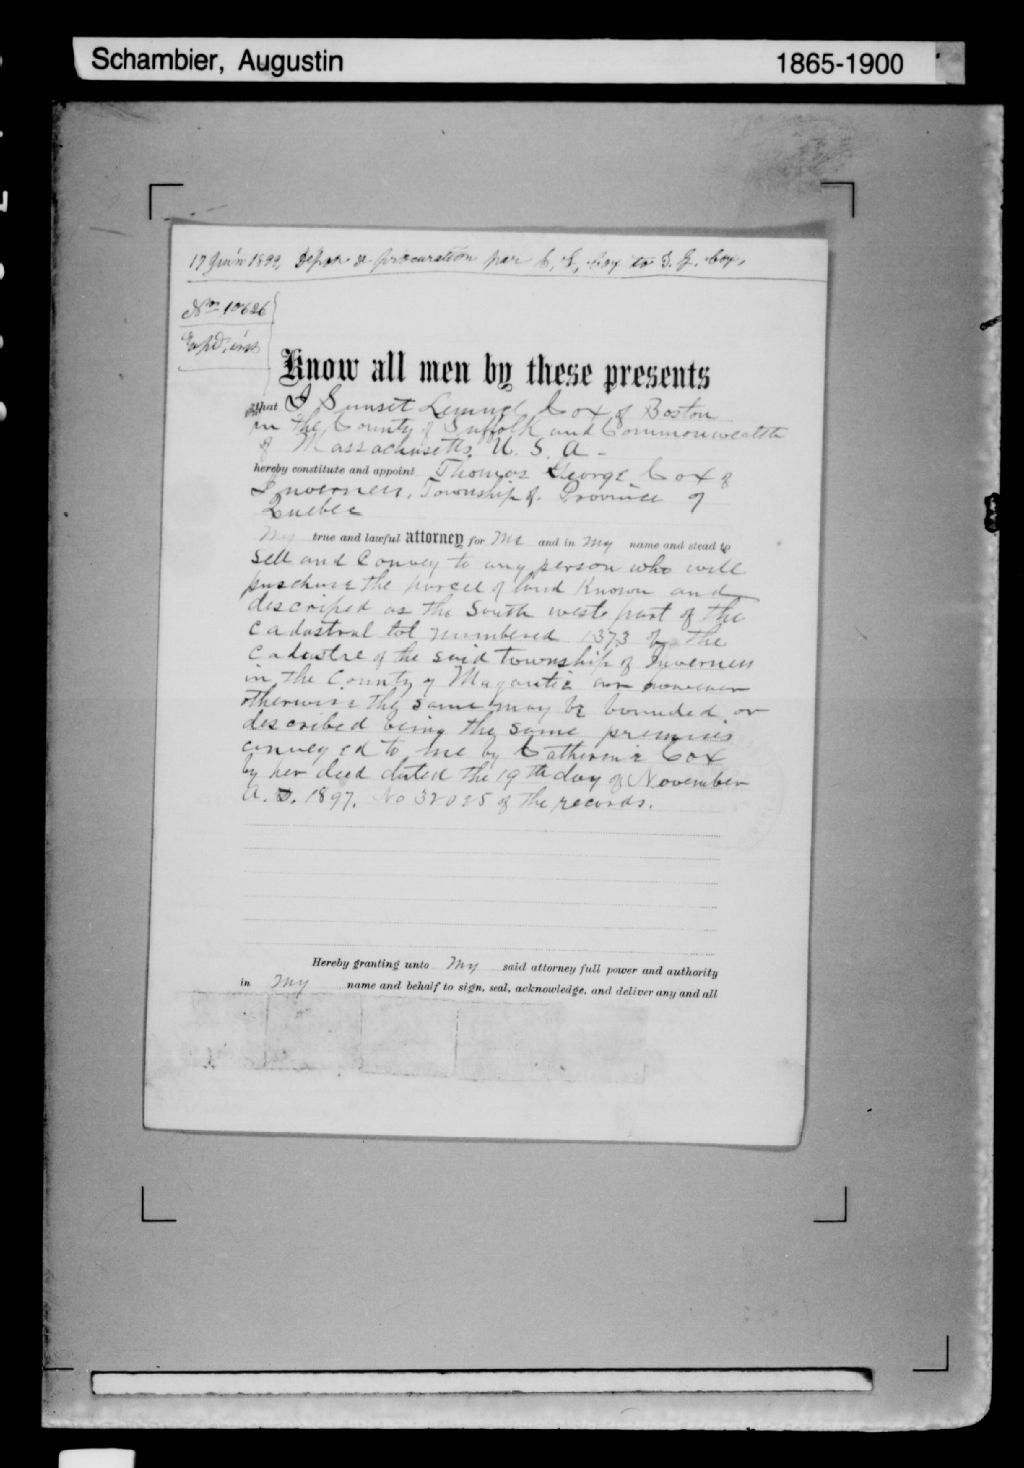 Schambier, Augustin 1865-1900
17 Juin 1899, Dépot de procuration par S. L. Cox to T. G. Cox.
No 10626
Know all men by these presents
that I Sunset Lemuel Cox of Boston
in the County of Suffolk and Commonwealth
of Massachusetts, U. S. A -
hereby constitute and appoint Thomas George Cox of
Inverness, Township of. Province of
Quebec
My true and lawful attorney for Me and in My name and stead to
Sell and Convey to any person who will
purchase the parcel of land Known and
described as the South west part of the
Cadastral lot numbered 1373 of the
Cadastre of the said township of Inverness
in the County of Megantic or however
otherwise the same may be bounded or
described being the same premises
conveyed to me by Catherine Cox
by her deed dated the 19th day of November
A. D. 1897. No 32025 of the records.
Hereby granting unto My said attorney full power and authority
in My name and behalf to sign, seal, acknowledge, and deliver any and all